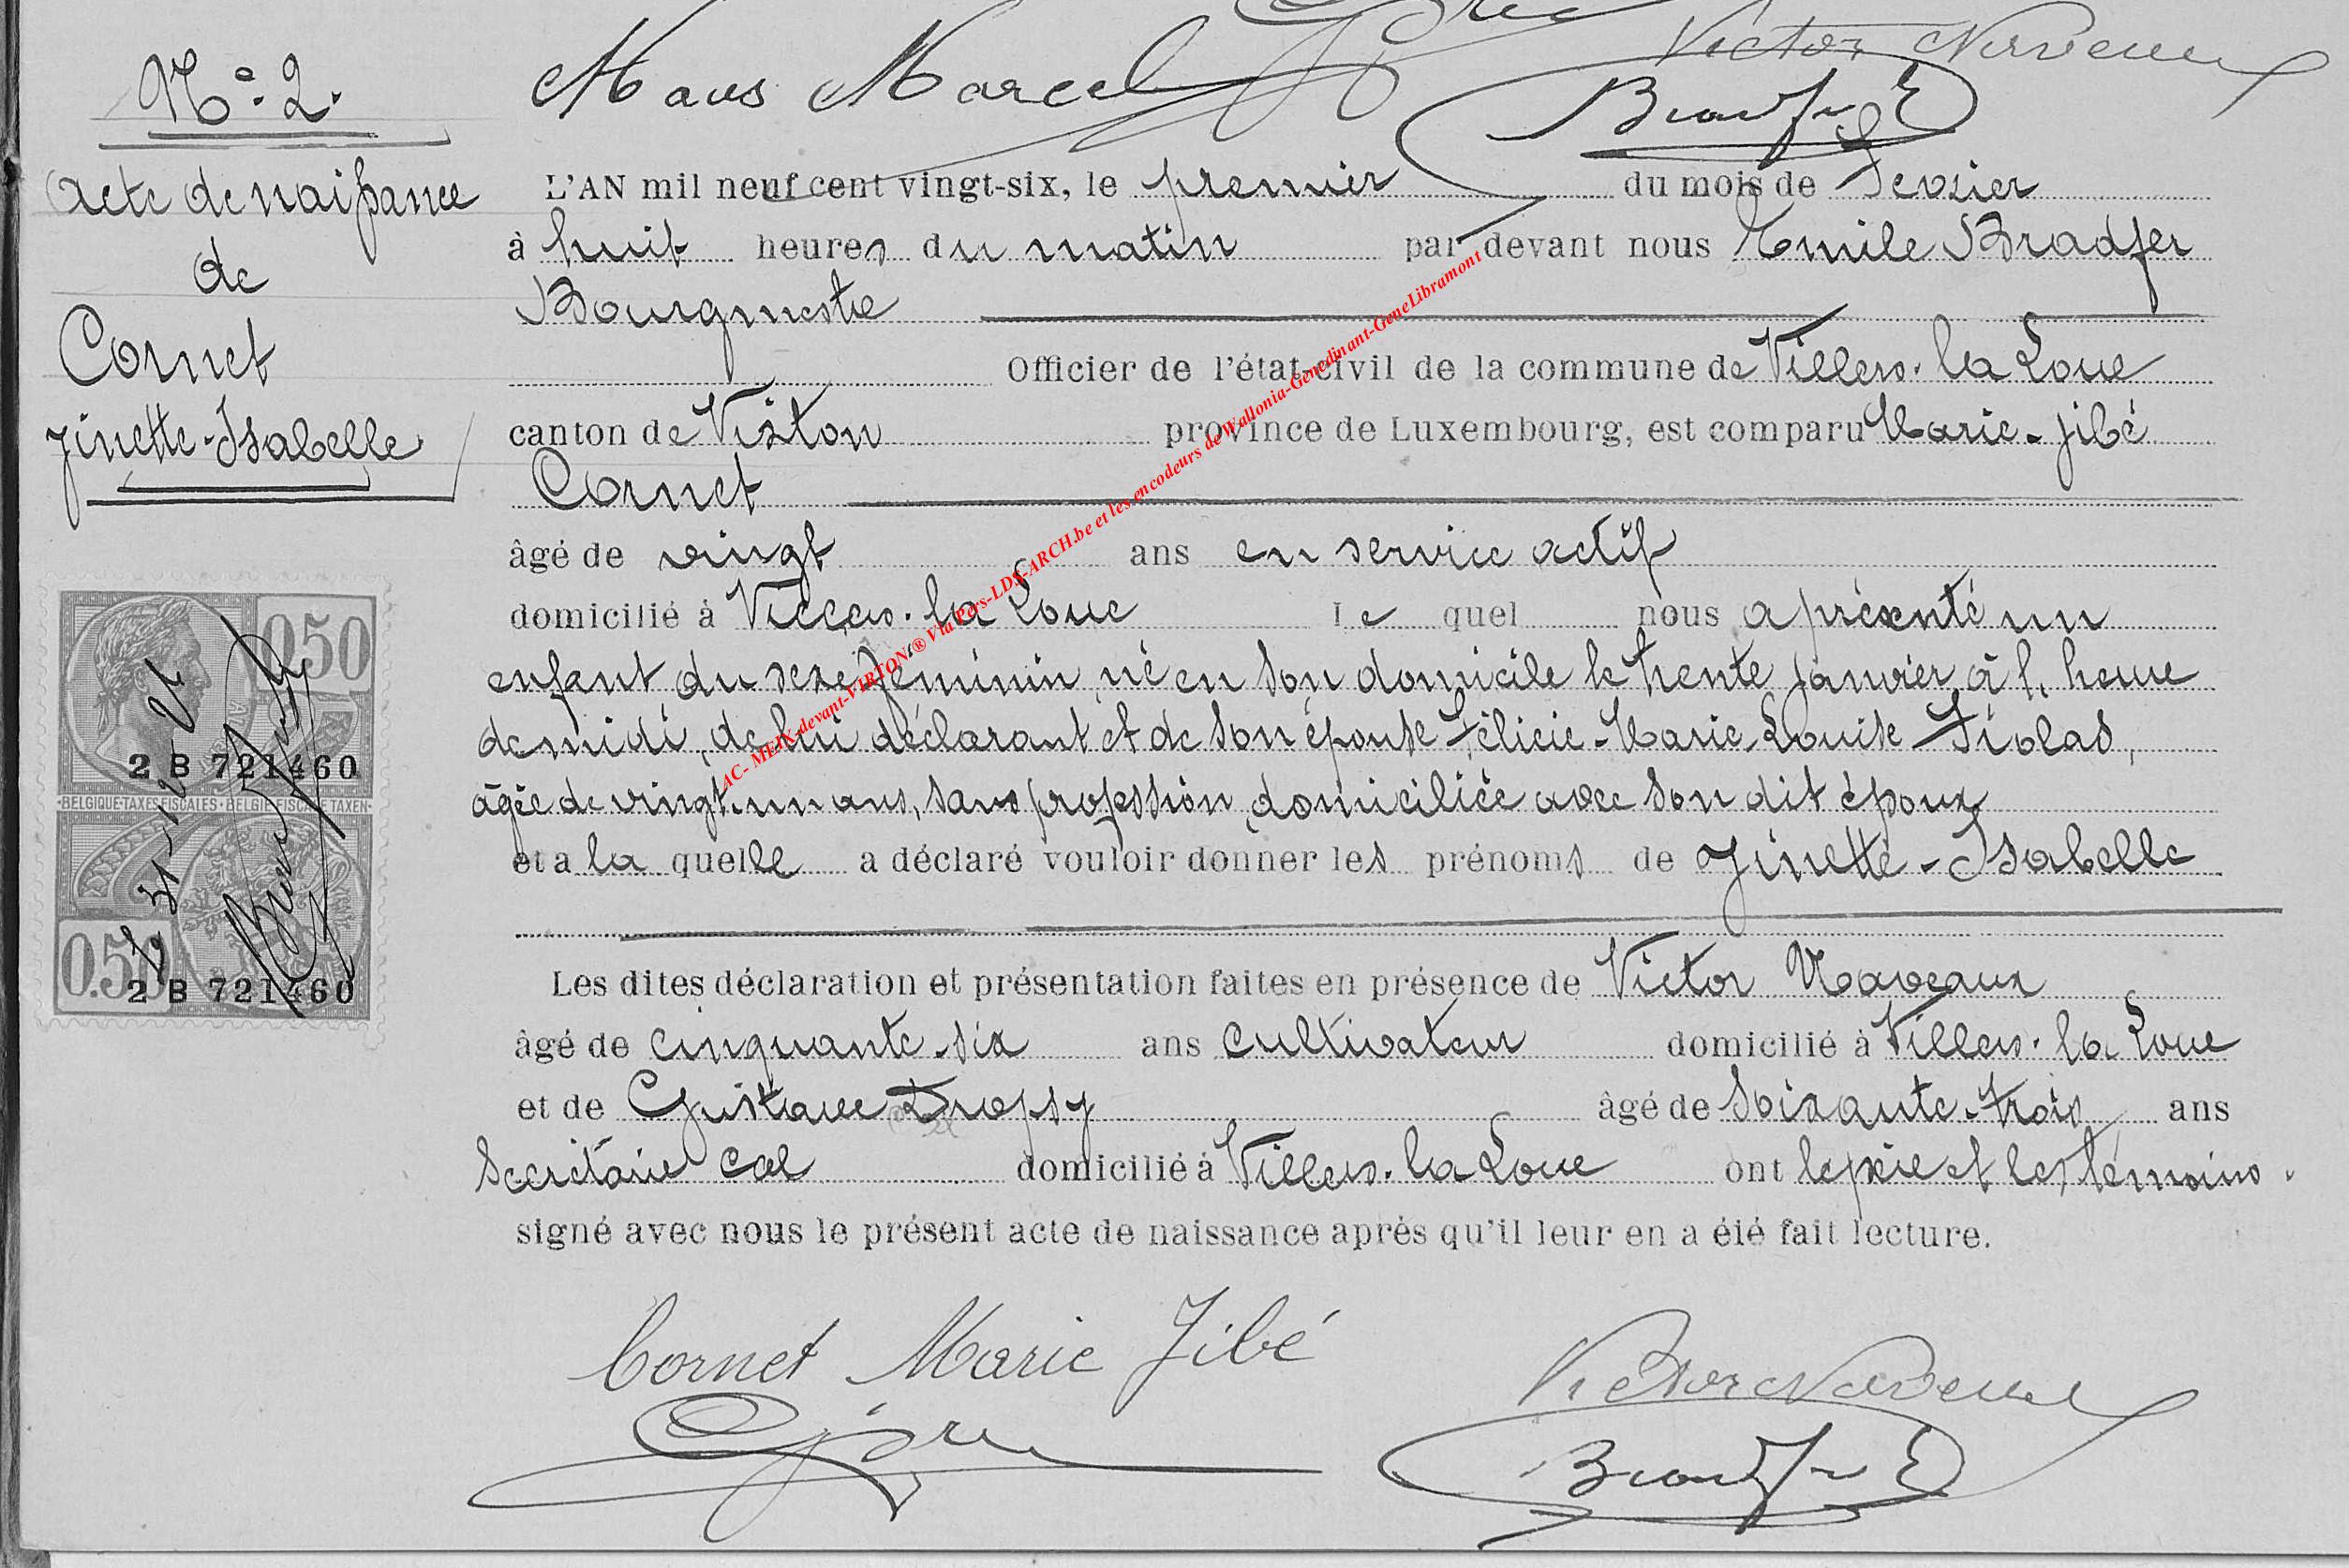 Maus Marcel
Victor Naveaux
Bradfer E
N° 2.
Acte de naissance
de
Cornet
Jinette-Isabelle
L'AN mil neuf cent vingt-six, le premier du mois de Fevrier
à huit heures du matin par devant nous Emile Bradfer
Bourgmestre
Officier de l'état-civil de la commune de Villers-la Loue
canton de Virton province de Luxembourg, est comparu Marie-Jibé
Cornet
âgé de vingt ans en service actif
domicilié à Villers-la Loue Le quel nous a présenté un
enfant du sexe féminin, né en son domicile le trente janvier à l'heure
de midi, de lui déclarant et de son épouse Félicie-Marie-Louise
âgée de vingt-un ans, sans profession, domiciliée avec son dit époux
et a la quelle a déclaré vouloir donner les prénoms de Jinette-Isabelle
Les dites déclaration et présentation faites en présence de Victor Naveaux
âgé de cinquante-six ans cultivateur domicilié à Villers-la Loue
et de Gustave Dropsy âgé de soixante-trois ans
Secrétaire cal domicilié à Villers-la Loue ont le père et les témoins
signé avec nous le présent acte de naissance après qu'il leur en a été fait lecture.
Cornet Marie Jibé
Victor Naveaux
Bradfer E
050
2 B 721460
BELGIQUE-TAXES FISCALES · BELGIE FISCALE TAXEN
0.50
2 B 721460
AC- MEIX-devant-VIRTON.® Via Pers-LDS-ARCH.be et les encodeurs de Wallonia-Genedinant-GeneLibramont